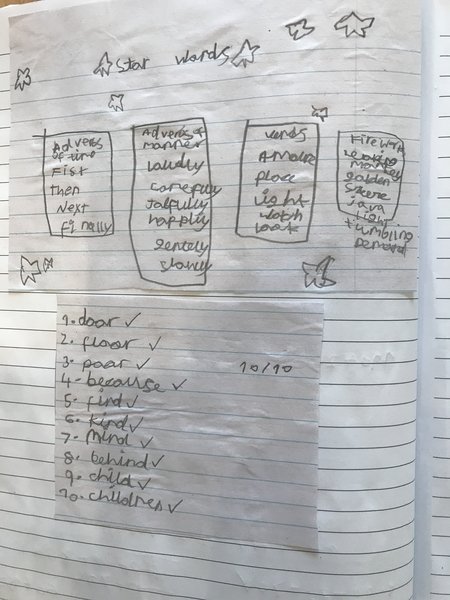 Star words
Adverbs
of time
Fist
then
Next
Finally
Adverbs of
manner
loudly
carefully
happily
gentely
slowly
verbs
place
light
watch
Firework
leaping
monkey
golden
java
light
tumbling
1. door ✓
2. floor ✓
3. poor ✓
4. because ✓
5. find ✓
6. kind ✓
7. mind ✓
8. behind ✓
9. child ✓
10. childres ✓
10/10